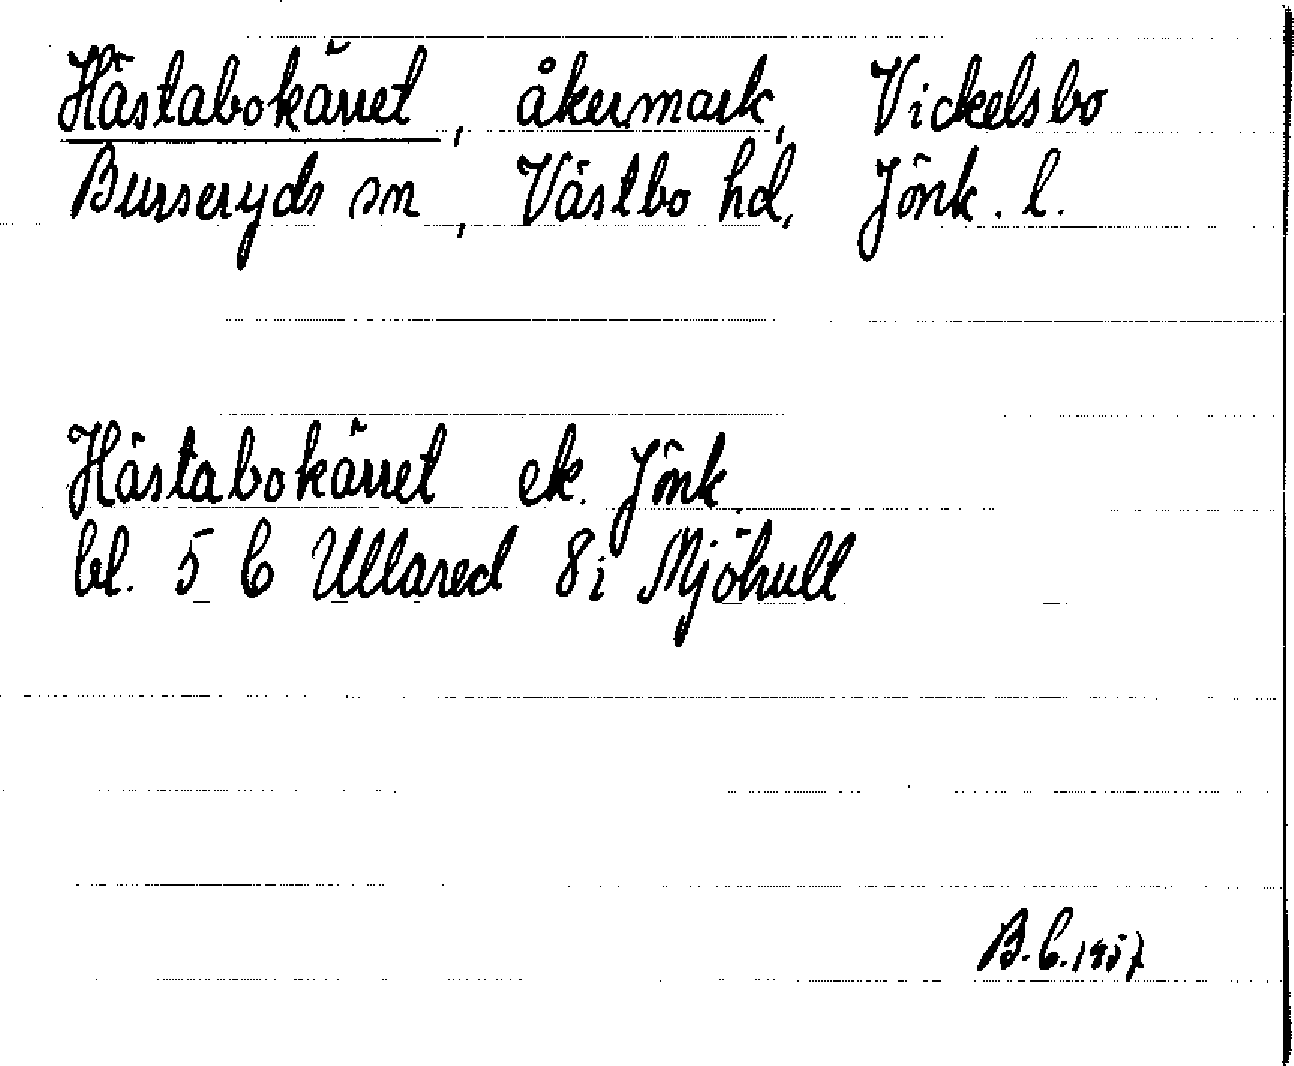 Hästabokärret, åkermark, Vickelsbo
Burseryds sn, Västbo hd, Jönk. l.
Hästabokärret ek. Jönk.
bl. 5 C Ullared 8i Mjöhult
B.C. 1957